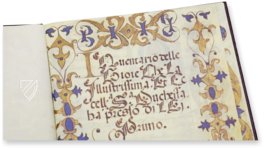 Inventario delle
Gioie Dx La
Illustrissima. Et Ec
cell.ª S.ª Duchessa
ha preso di S. Ex
Primo.